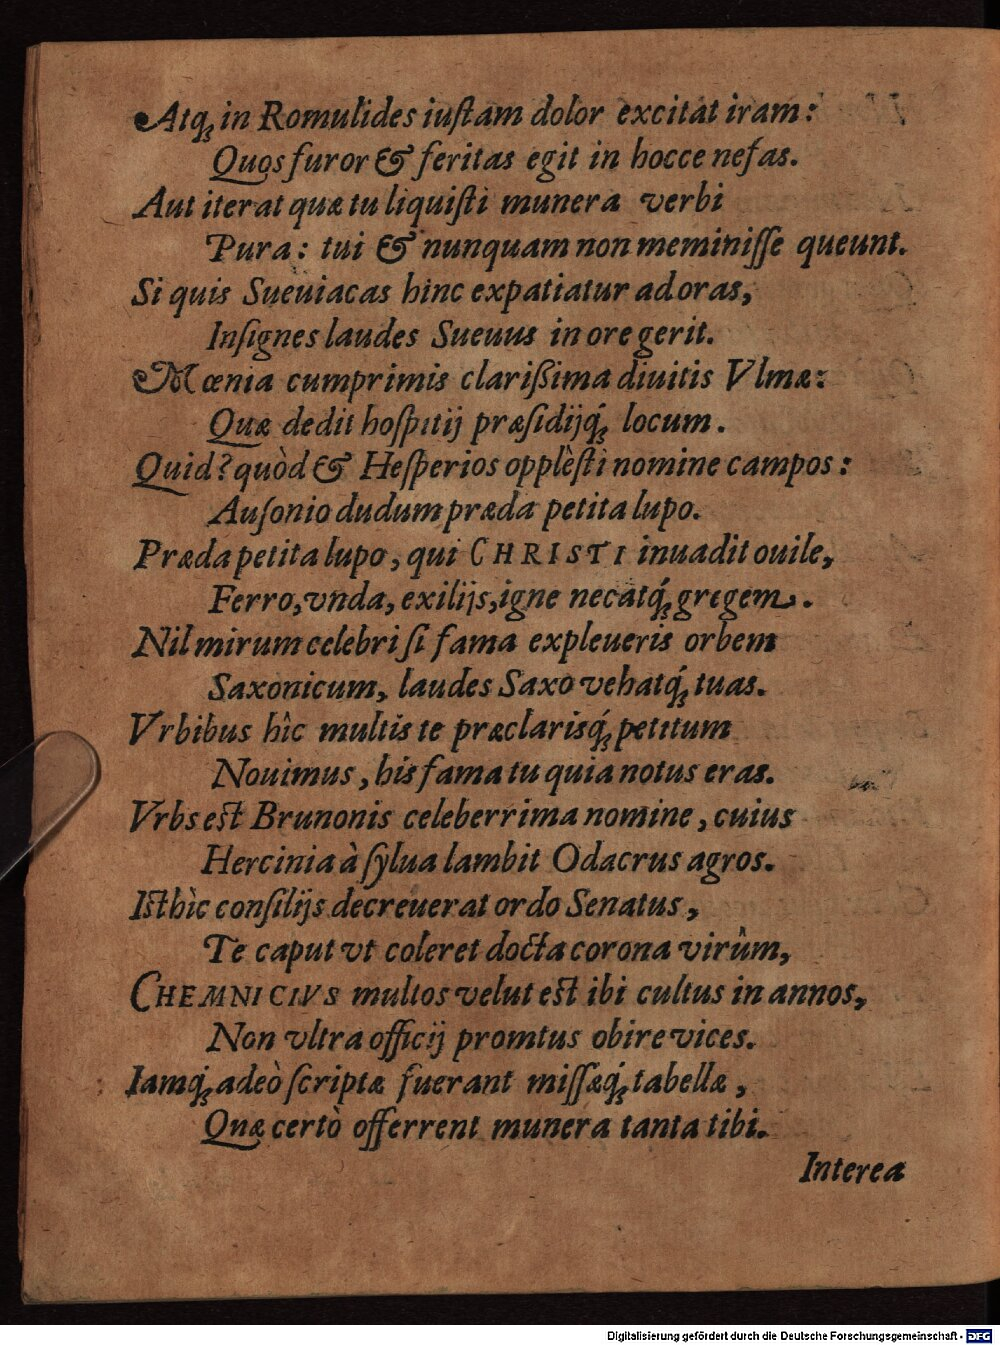 Atq́ꝫ in Romulides iuſtam dolor excitat iram:
Quos furor & feritas egit in hocce nefas.
Aut iterat quæ tu liquiſti munera verbi
Pura: tui & nunquam non meminiſſe queunt.
Si quis Sueuiacas hinc expatiatur ad oras,
Inſignes laudes Sueuus in ore gerit.
Mœnia cumprimis clarißima diuitis Vlmæ:
Quæ dedit hoſpitij præſidijq́ꝫ locum.
Quid? quòd & Heſperios opplèſti nomine campos:
Auſonio dudum præda petita lupo.
Præda petita lupo, qui CHRISTI inuadit ouile,
Ferro, vnda, exilijs, igne necatq́ꝫ gregem.
Nil mirum celebri ſi fama expleueris orbem
Saxonicum, laudes Saxo vehatq́ꝫ tuas.
Vrbibus hîc multis te præclarisq́ꝫ petitum
Nouimus, his fama tu quia notus eras.
Vrbs est Brunonis celeberrima nomine, cuius
Hercinia à ſylua lambit Odacrus agros.
Isthìc conſilijs decreuerat ordo Senatus,
Te caput vt coleret docta corona virûm,
CHEMNICIVS multos velut est ibi cultus in annos,
Non vltra officij promtus obire vices.
Iamq́ꝫ adeò ſcriptæ fuerant miſſæq́ꝫ tabellæ,
Quæ certò offerrent munera tanta tibi.
Interea
Digitalisierung gefördert durch die Deutsche Forschungsgemeinschaft - DFG